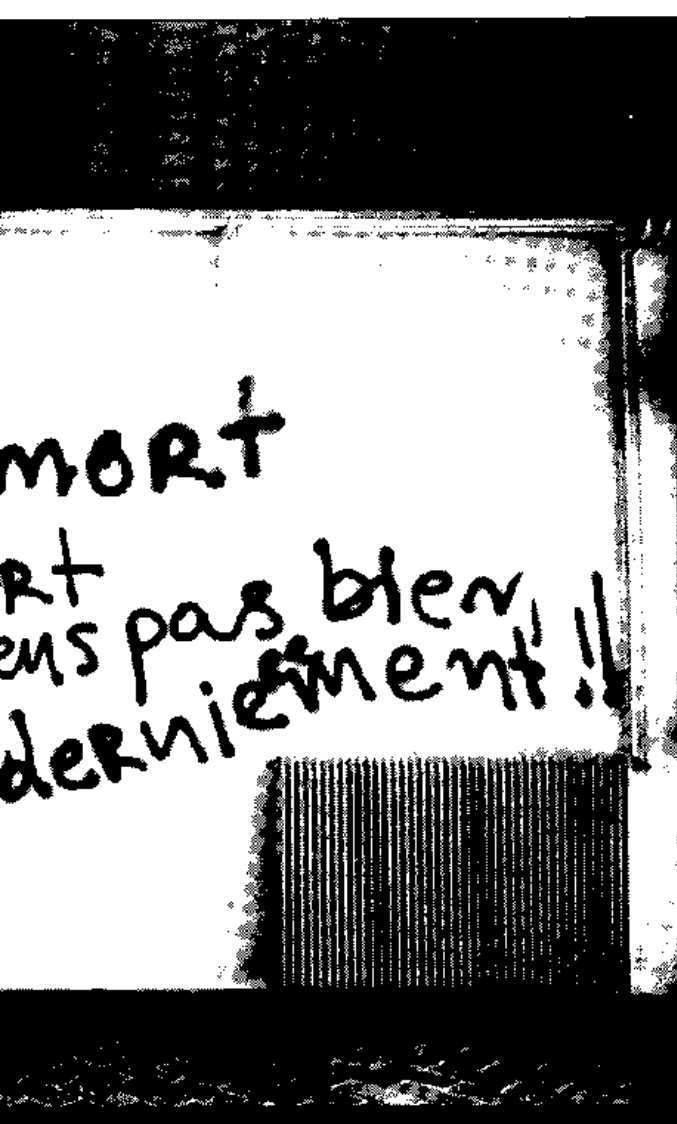 mort
rt
ens pas bien,
derniement!!